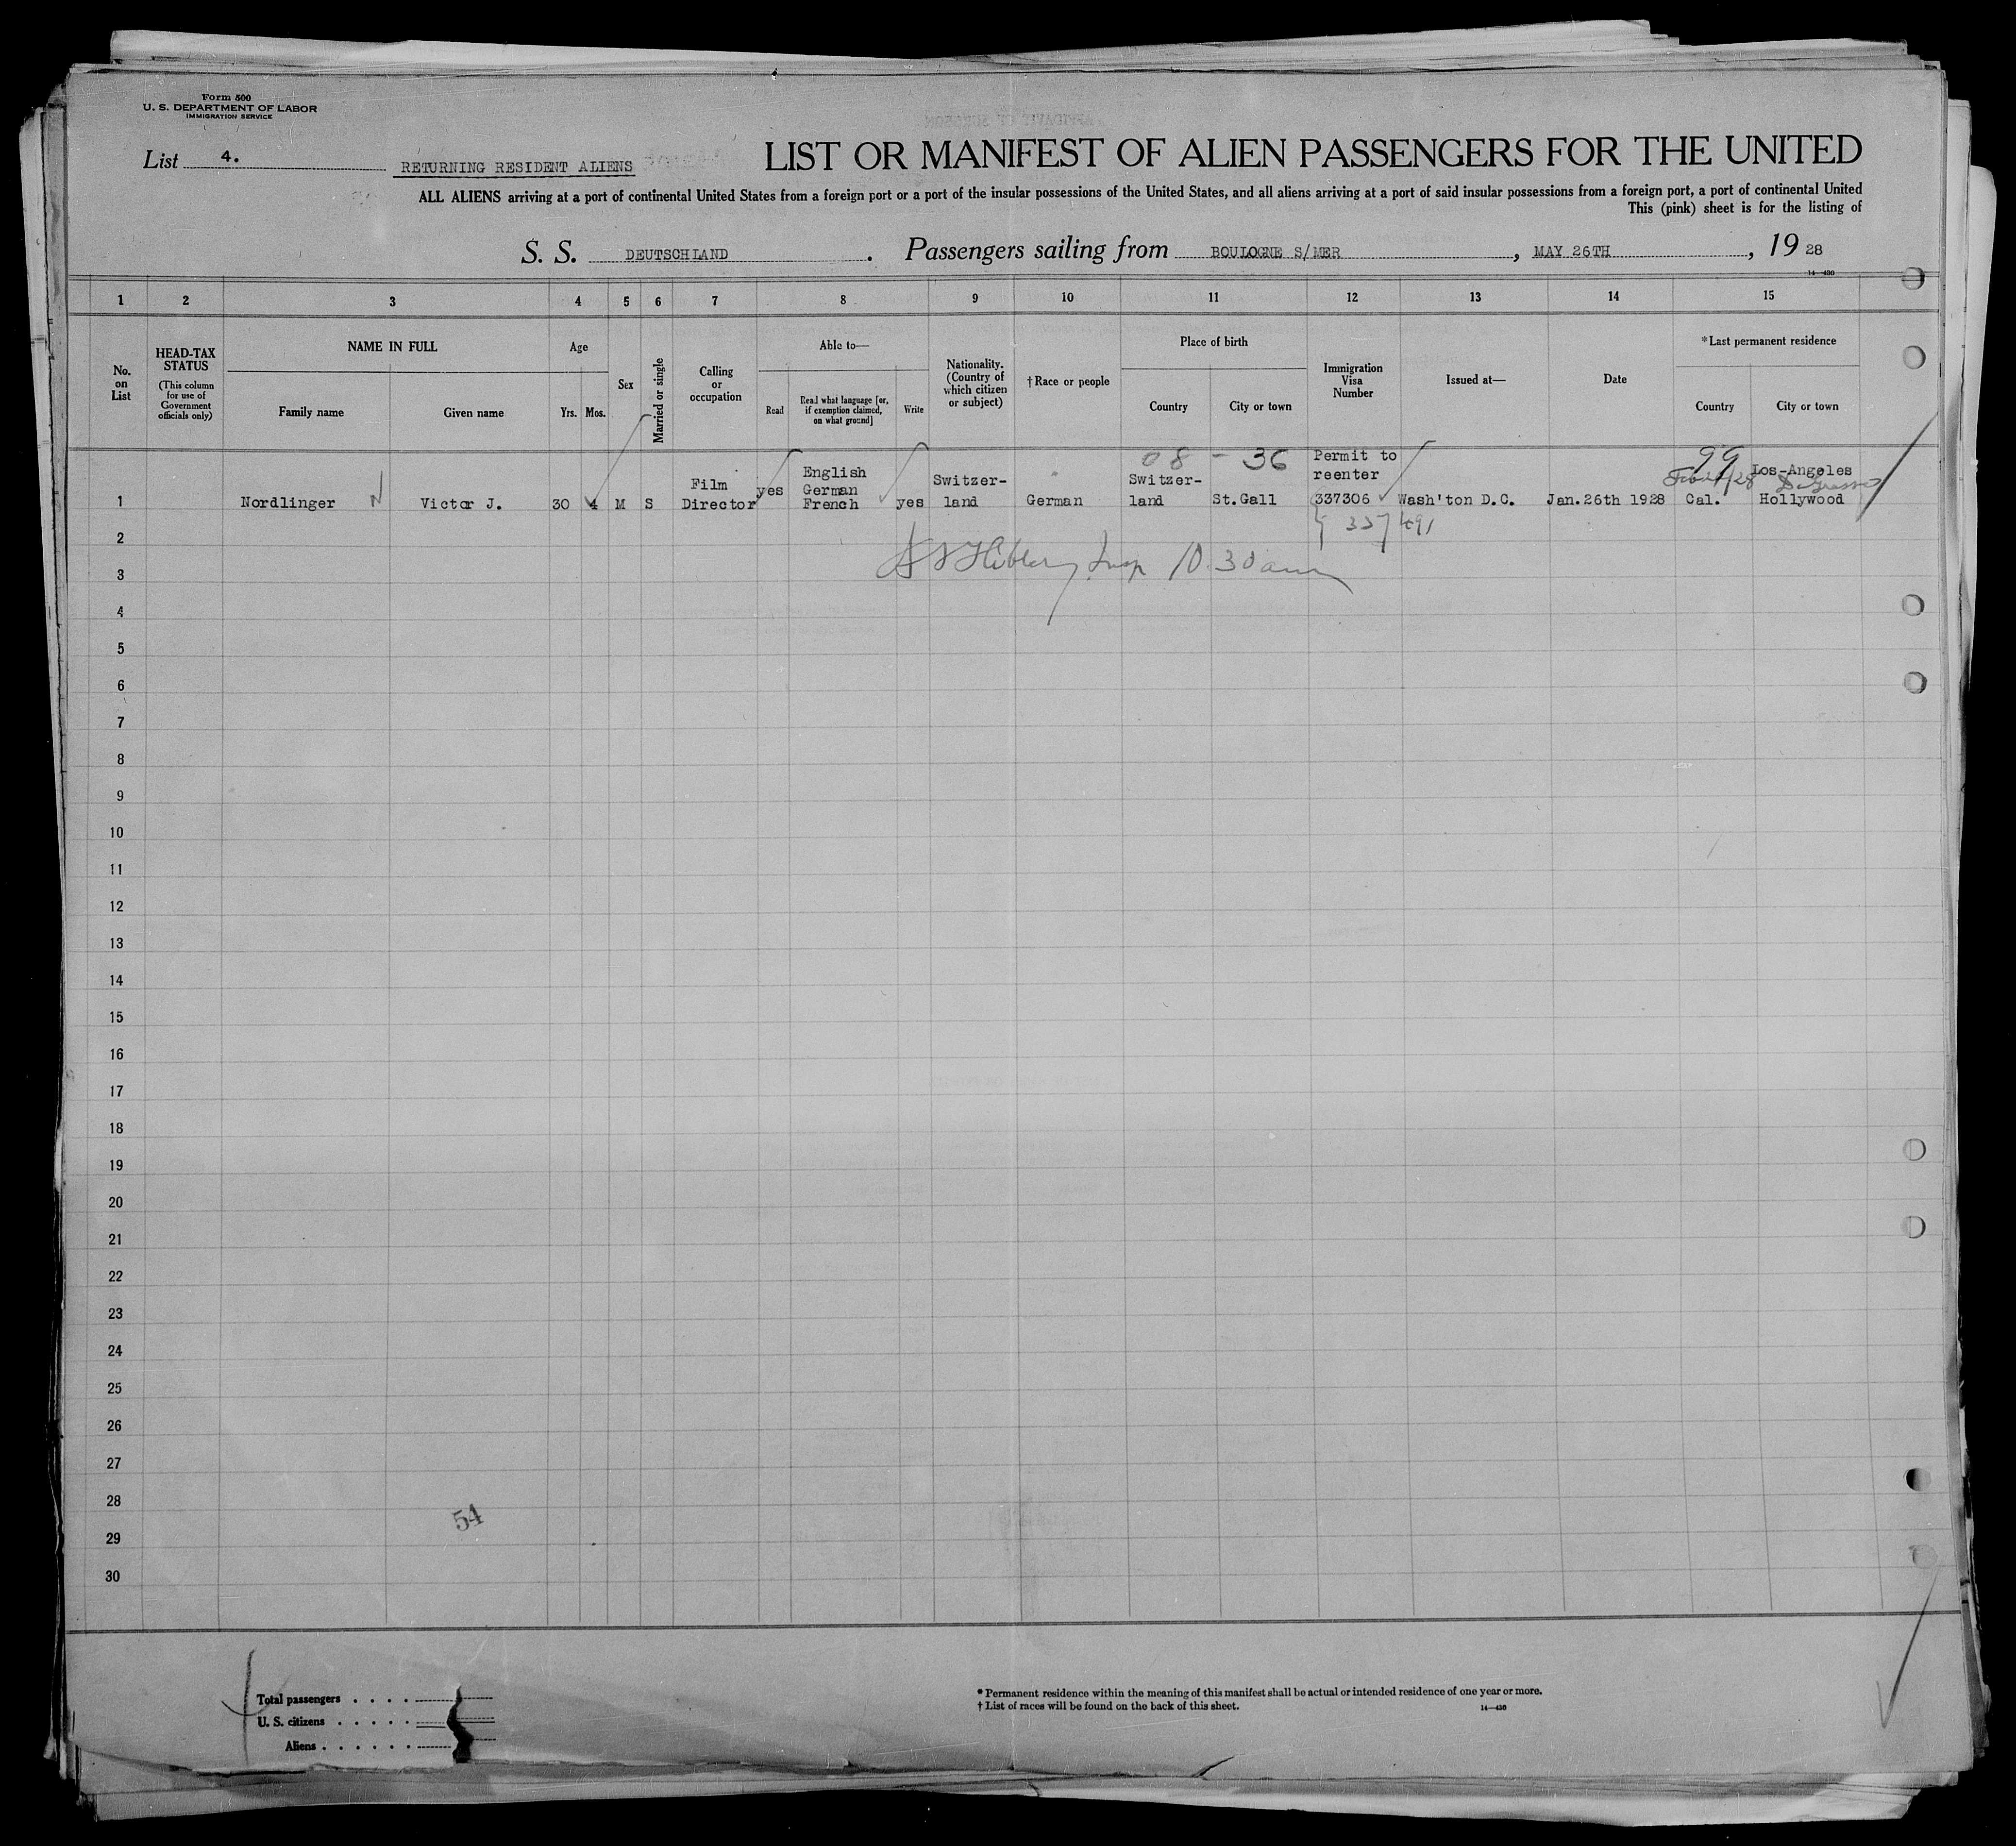 Form 500
U. S. DEPARTMENT OF LABOR
IMMIGRATION SERVICE
List 4.
RETURNING RESIDENT ALIENS
LIST OR MANIFEST OF ALIEN PASSENGERS FOR THE UNITED
ALL ALIENS arriving at a port of continental United States from a foreign port or a port of the insular possessions of the United States, and all aliens arriving at a port of said insular possessions from a foreign port, a port of continental United
This (pink) sheet is for the listing of
S. S. DEUTSCHLAND. Passengers sailing from BOULOGNE S/MER, MAY 26TH, 1928
14—430
1 2 3 4 5 6 7 8 9 10 11 12 13 14 15
No. on List
HEAD-TAX STATUS
(This column for use of Government officials only)
NAME IN FULL
Family name
Given name
Age
Yrs. Mos.
Sex
Married or single
Calling or occupation
Able to—
Read
Read what language [or, if exemption claimed, on what ground]
Write
Nationality. (Country of which citizen or subject)
†Race or people
Place of birth
Country
City or town
Immigration Visa Number
Issued at—
Date
*Last permanent residence
Country
City or town
08 - 36
99
1 Nordlinger Victor J. 30 4 M S Film Director yes English German French yes Switzer-land German Switzer-land St.Gall Permit to reenter 337306 Wash'ton D.C. Jan.26th 1928 Cal. Los-Angeles Hollywood
337491
Insp 10.30 am
2
3
4
5
6
7
8
9
10
11
12
13
14
15
16
17
18
19
20
21
22
23
24
25
26
27
28
29
30
54
Total passengers
U. S. citizens
Aliens
* Permanent residence within the meaning of this manifest shall be actual or intended residence of one year or more.
† List of races will be found on the back of this sheet.
14—430